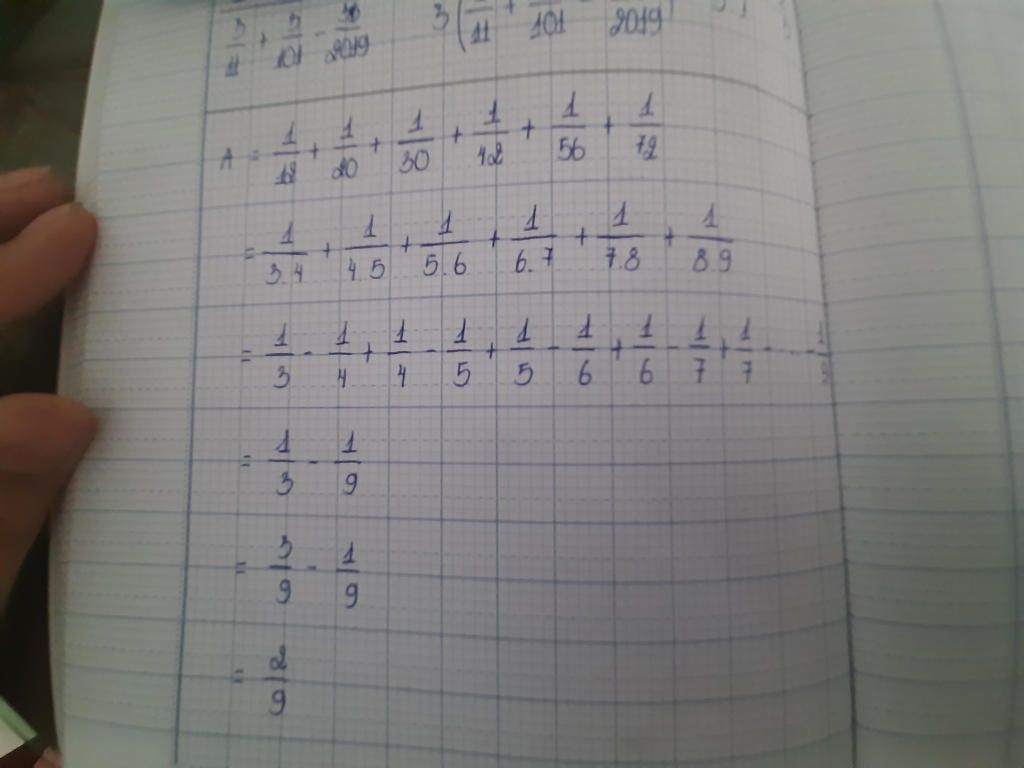 3/11 + 3/101 - 30/2019 3 (11 + 101 2019)
A = 1/12 + 1/20 + 1/30 + 1/42 + 1/56 + 1/72
= 1/3.4 + 1/4.5 + 1/5.6 + 1/6.7 + 1/7.8 + 1/8.9
= 1/3 - 1/4 + 1/4 - 1/5 + 1/5 - 1/6 + 1/6 - 1/7 + 1/7 - - - 1/9
= 1/3 - 1/9
= 3/9 - 1/9
= 2/9